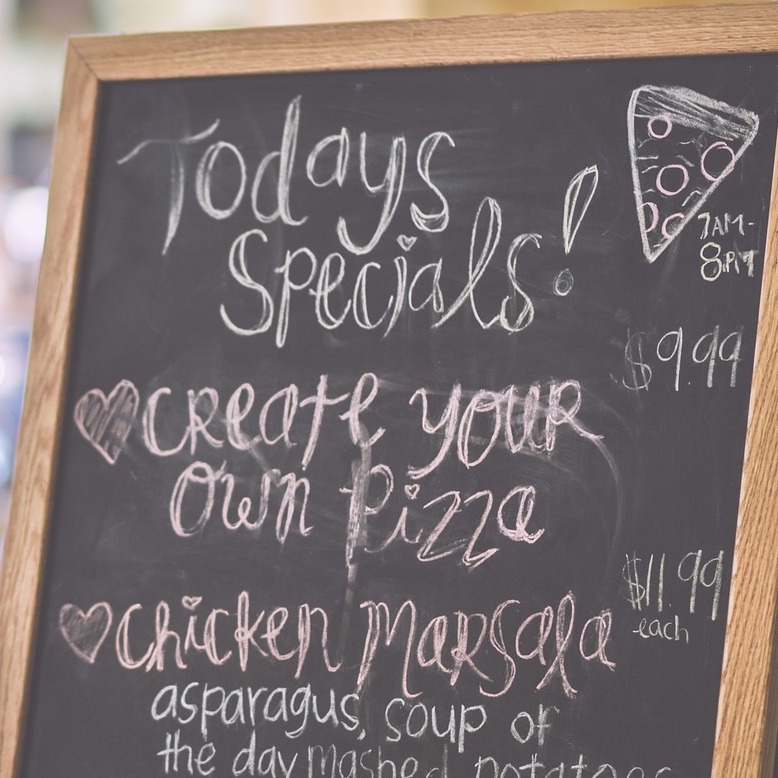 Todays
Specials!
7AM-
8PM
$9.99
CReate youR
Own Pizza
$11.99
each
chicken MaRSala
asparagus, soup of
the day mashed potatoes